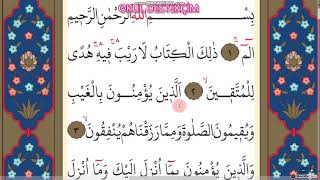 OKUL DESTEKÇİM
بِسْمِ اللّٰهِ الرَّحْمٰنِ الرَّحِيمِ
الٓمٓ ۚ ﴿١﴾ ذٰلِكَ الْكِتَابُ لَا رَيْبَ ۚۛ فِيهِ ۚۛ هُدًى
لِلْمُتَّقِينَ ۙ ﴿٢﴾ اَلَّذِينَ يُؤْمِنُونَ بِالْغَيْبِ
وَيُقِيمُونَ الصَّلٰوةَ وَمِمَّا رَزَقْنَاهُمْ يُنْفِقُونَ ۙ ﴿٣﴾
وَالَّذِينَ يُؤْمِنُونَ بِمَٓا اُنْزِلَ اِلَيْكَ وَمَٓا اُنْزِلَ